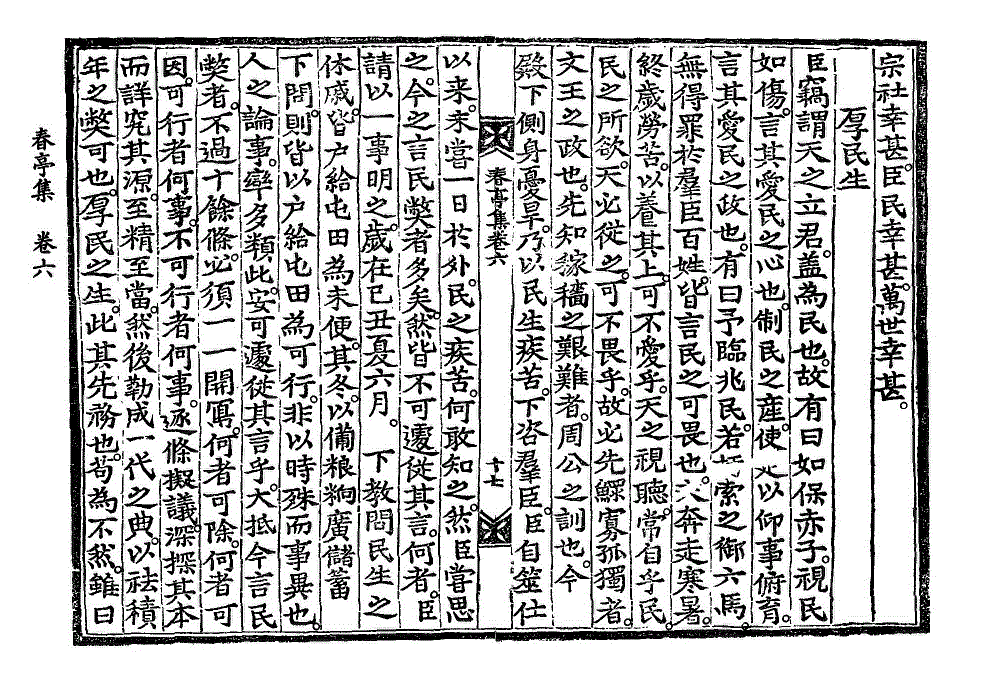 宗社幸甚。臣民幸甚。萬世幸甚。
厚民生
臣竊謂天之立君。盖為民也。故有曰如保赤子。視民
如傷。言其愛民之心也。制民之産。使以仰事俯育。
言其愛民之政也。有曰予臨兆民。若索之御六馬。
無得罪於羣臣百姓。皆言民之可畏也。奔走寒暑。
終歲勞苦。以養其上。可不愛乎。天之視聽。常自乎民。
民之所欲。天必從之。可不畏乎。故必先鰥寡孤獨者。
文王之政也。先知稼穡之艱難者。周公之訓也。今
殿下側身憂旱。乃以民生疾苦。下咨羣臣。臣自筮仕
春亭集卷六
十七
以来。未嘗一日於外。民之疾苦。何敢知之。然臣嘗思
之。今之言民獘者多矣。然皆不可遽從其言。何者。臣
請以一事明之。歲在己丑夏六月。 下教問民生之
休戚。皆户給屯田為未便。其冬。以備粮餉廣儲蓄
下問。則皆以户給屯田為可行。非以時殊而事異也。
人之論事。率多類此。安可遽從其言乎。大抵今言民
獘者。不過十餘條。必須一一開寫。何者可除。何者可
因。可行者何事。不可行者何事。逐條擬議。深探其本
而詳究其源。至精至當。然後勒成一代之典。以祛積
年之獘可也。厚民之生。此其先務也。苟為不然。雖曰
春亭集 卷六